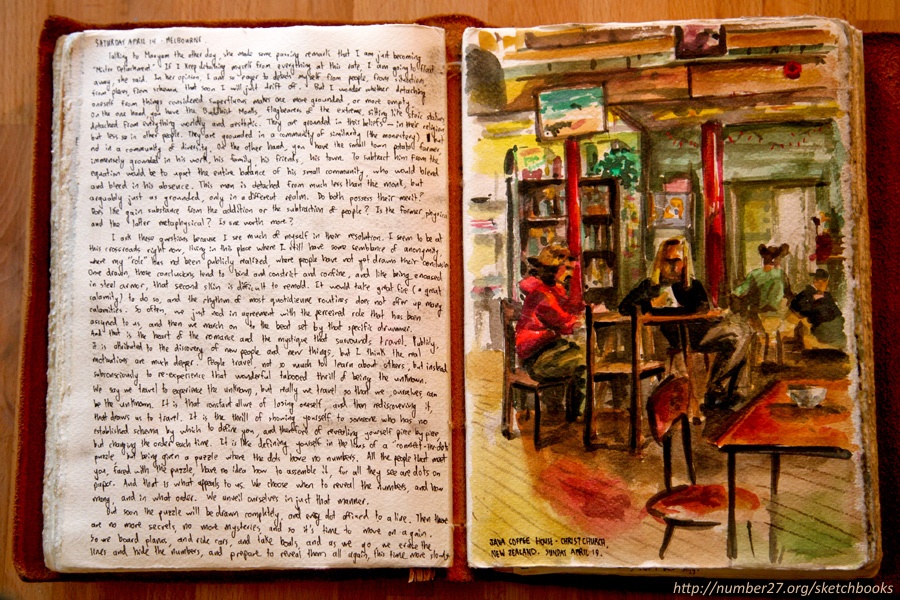 SATURDAY APRIL 18 - MELBOURNE
Talking to Maryam the other day, she made some passing remark that I am just becoming
"Mister Detachment." If I keep detaching myself from everything at this rate, I am going to float
away, she said. In her opinion, I am so eager to detach myself from people, from situations,
from places, from schema that soon I will just drift off. But I wonder whether detaching
oneself from things considered superfluous makes one more grounded, or more empty.
On the one hand you have the Buddhist Monks, flagbearers of the extreme, sitting like stoic statues,
detached from everything worldly and aesthetic. They are grounded in their beliefs — in their religion
but less so in other people. They are grounded in a community of similarity (the monastery), but
not in a community of diversity. On the other hand, you have the small town potato farmer,
immensely grounded in his work, his family, his friends, his town. To subtract him from the
equation would be to upset the entire balance of his small community, who would bleed
and bleed in his absence. This man is detached from much less than the monk, but
arguably just as grounded, only in a different realm. Do both possess their merit?
Does life gain substance from the addition or the subtraction of people? Is the former physical
and the latter metaphysical? Is one worth more?
I ask these questions because I see much of myself in their resolution. I seem to be at
this crossroads right now, living in this place where I still have some semblance of anonymity,
where my "role" has not been publicly realized, where people have not yet drawn their conclusions.
Once drawn, those conclusions tend to bind and constrict and confine, and like being encased
in steel armor, that second skin is difficult to remold. It would take great fire (a great
calamity) to do so, and the rhythm of most quotidienne routines does not offer up many
calamities. So often, we just nod in agreement with the perceived role that has been
assigned to us, and then we march on to the beat set by that specific drummer.
And that is the heart of the romance and the mystique that surrounds travel. Publicly,
it is attributed to the discovery of new people and new things, but I think the real
motivations are much deeper. People travel, not so much to learn about others, but instead
subconsciously to re-experience that wonderful tabooed thrill of being the unknown.
We say we travel to experience the unknown, but really we travel so that we ourselves can
be the unknown. It is that constant allure of losing yourself, and then rediscovering it,
that draws us to travel. It is the thrill of showing yourself to someone who has no
established schema by which to define you, and therefore of revealing yourself piece by piece,
but changing the order each time. It is like defining yourself in the lines of a "connect-the-dots"
puzzle but being given a puzzle where the dots have no numbers. All the people that meet
you, faced with the puzzle, have no idea how to assemble it, for all they see are dots on
paper. And that is what appeals to us. We choose when to reveal the numbers, and how
many, and in what order. We unveil ourselves in just that manner.
But soon the puzzle will be drawn completely, and every dot affixed to a line. Then there
are no more secrets, no more mysteries, and so it's time to move on again.
So we board planes and ride cars, and take boats, and as we go, we erase the
lines and hide the numbers, and prepare to reveal them all again, this time more slowly.
JAVA COFFEE HOUSE - CHRISTCHURCH
NEW ZEALAND. SUNDAY APRIL 19.
http://number27.org/sketchbooks